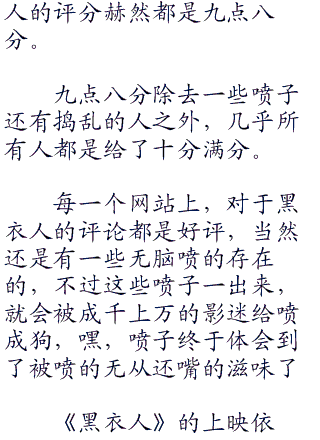 人的评分赫然都是九点八
分。
九点八分除去一些喷子
还有捣乱的人之外，几乎所
有人都是给了十分满分。
每一个网站上，对于黑
衣人的评论都是好评，当然
还是有一些无脑喷的存在
的，不过这些喷子一出来，
就会被成千上万的影迷给喷
成狗，嘿，喷子终于体会到
了被喷的无从还嘴的滋味了
《黑衣人》的上映依